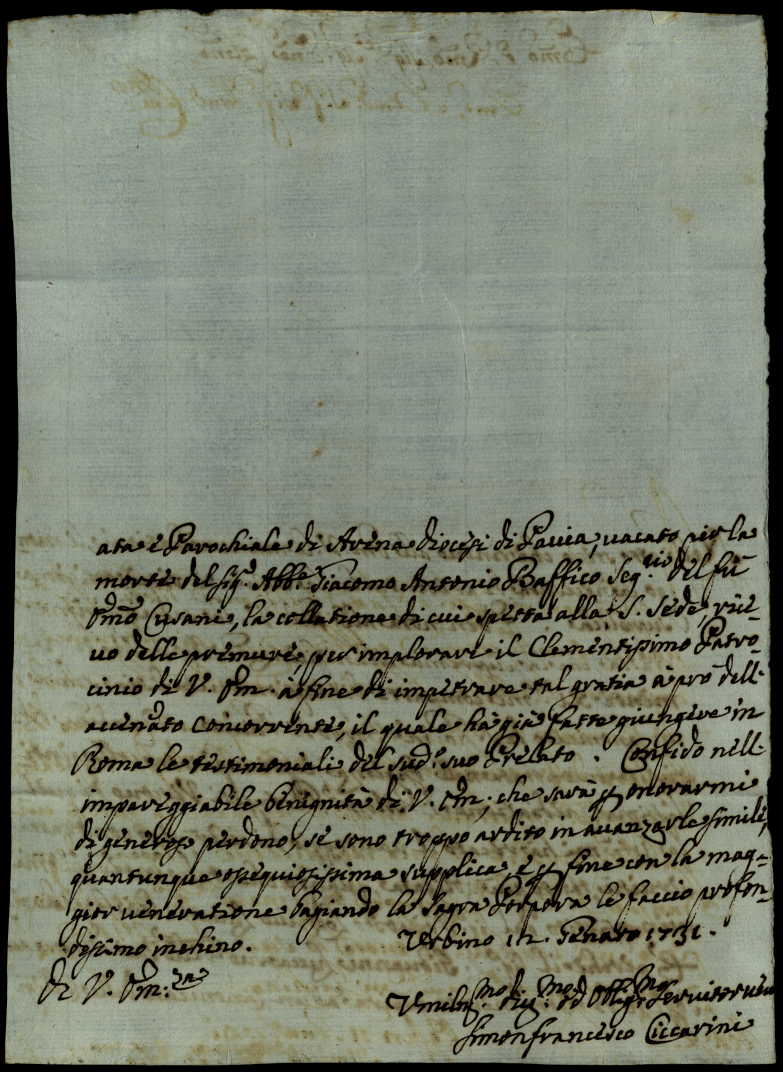 ata e Parochiale di Arena Diocesi di Pavia, vacato per la
morte del Sig.r Abb.e Giacomo Antonio Baffico Seg.rio del fù
Em̃o Cusani, la collatione di cui spetta alla S. Sede, rice-
vo delle premure per implorare il Clementissimo Patro-
cinio di V. Em. à fine di impetrare tal gratia à prò dell'
accenato concorrente, il quale hà già fatto giungere in
Roma le testimoniali del sud.o suo Prelato. Confido nell'
impareggiabile benignità di V. Em; che sarà p onorarmi
di generoso perdono, se sono troppo ardito in avanzarle simile,
quantunque ossequiosissima supplica e p fine con la mag-
gior veneratione bagiando la Sagra Porpora le faccio profon-
dissimo inchino. Urbino 12. Genaro 1731.
di V. Em:za
Umilis.mo Div.mo ed Obblig.mo Servitore
Simonfrancesco Ciccarini